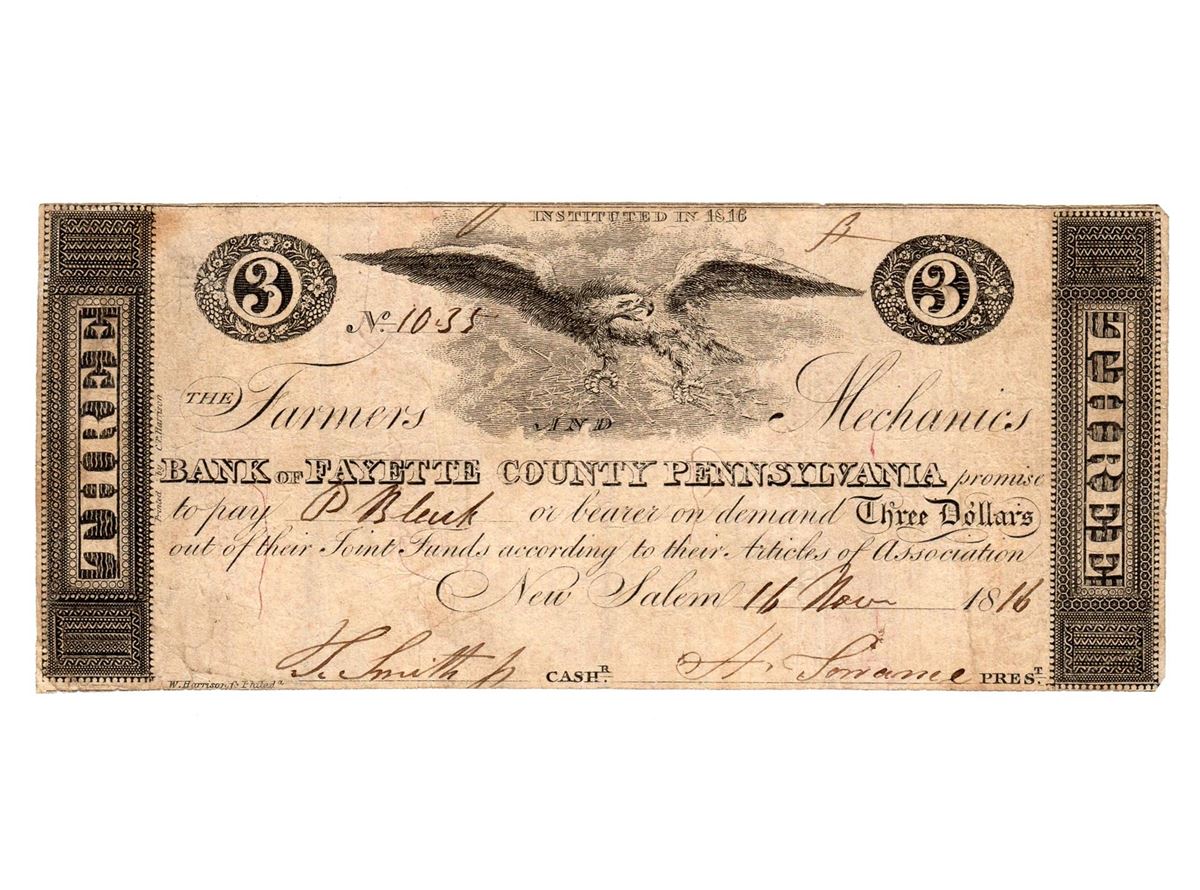 INSTITUTED IN 1816
3
3
No. 1035
A
THE Farmers AND Mechanics
BANK OF FAYETTE COUNTY PENNSYLVANIA promise
to pay P Bleuk or bearer on demand Three Dollars
out of their Joint Funds according to their Articles of Association
New Salem 16 Nov 1816
Smith CASHR.
H. PREST.
THREE
THREE
Printed by C.P. Harrison
W. Harrison, Sc Philada